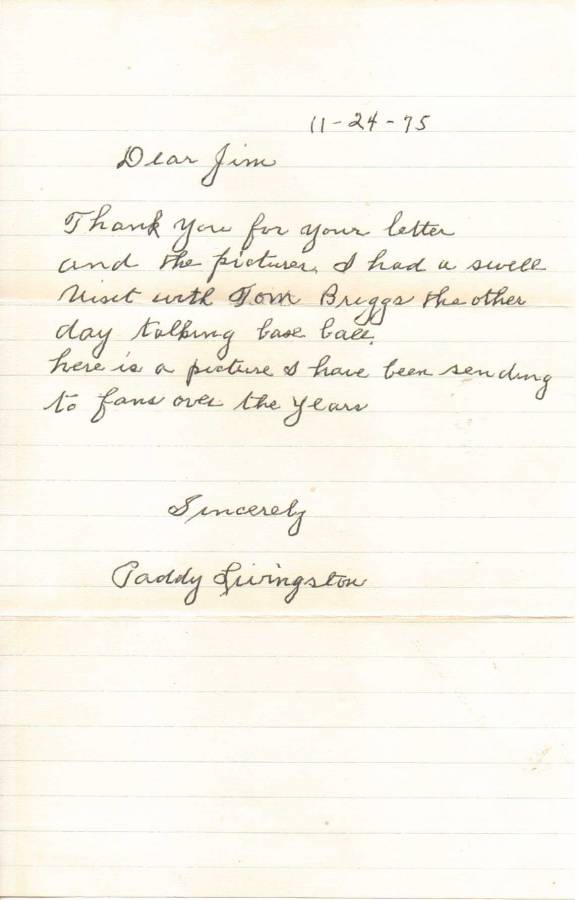 11-24-75
Dear Jim
Thank you for your letter
and the pictures. I had a swell
visit with Tom Briggs the other
day talking base ball.
here is a picture I have been sending
to fans over the years
Sincerely
Paddy Livingston